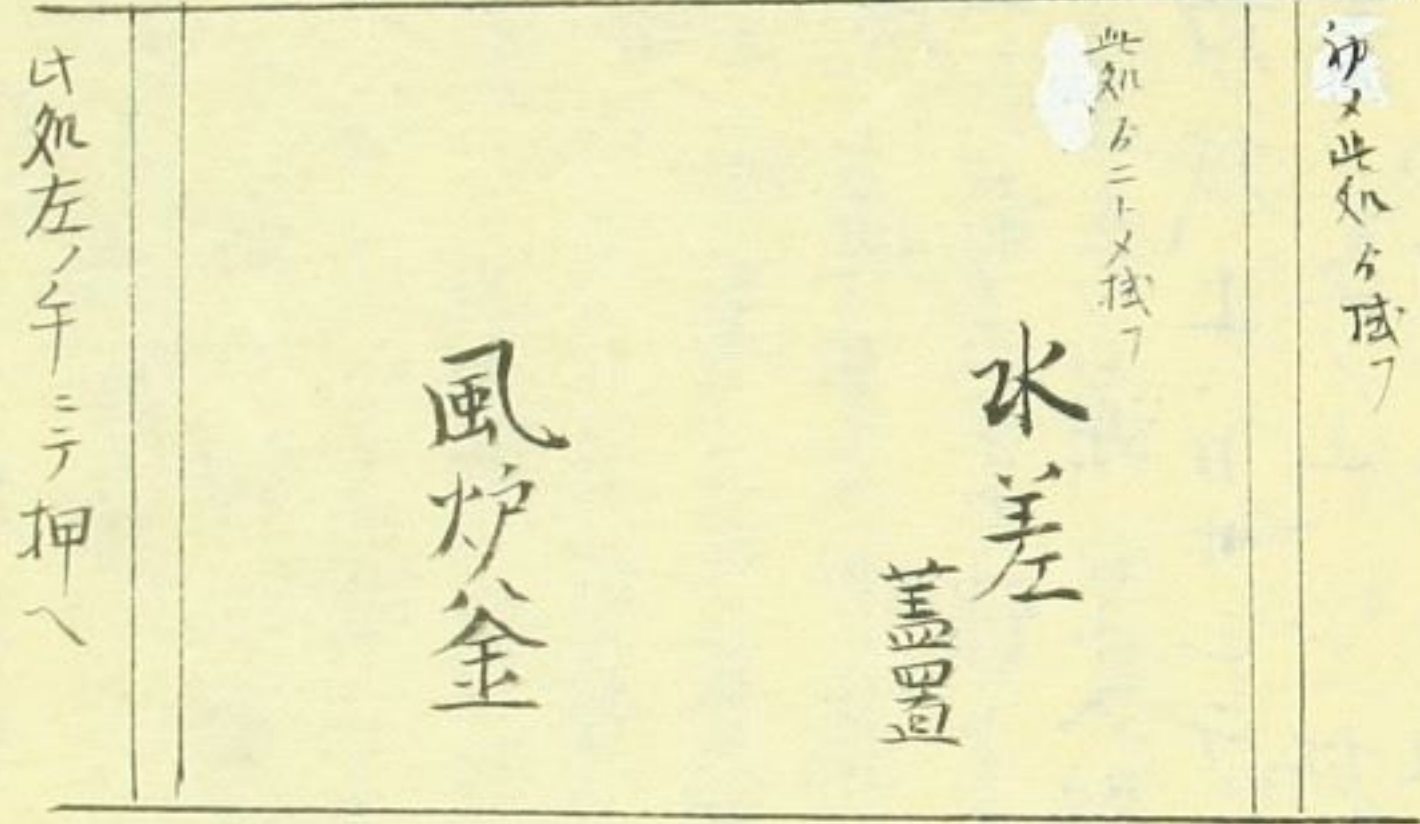 初メ此処ゟ拭フ
此処ゟニトメ拭フ
水差
蓋置
風炉釜
此処左ノ手ニテ押ヘ